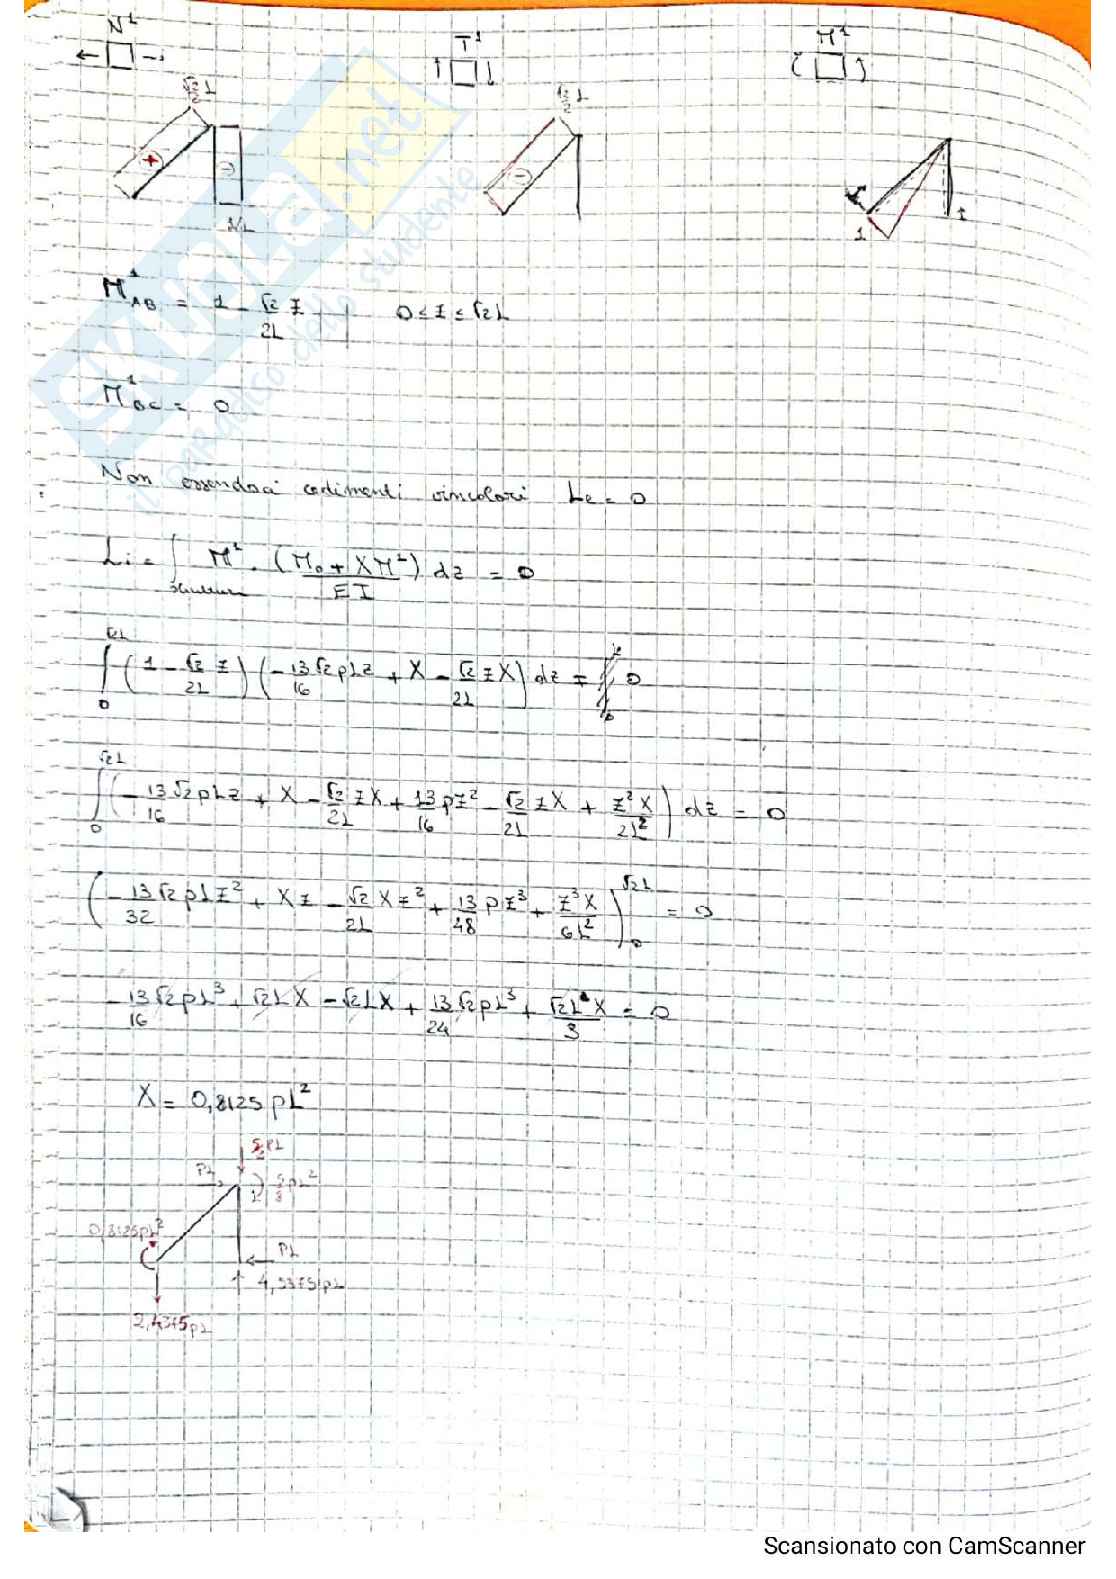 N¹ T¹ M¹
√2/2 L √2/2 L
(+) (-) (-)
1/L 1 1
M¹AB = 1 - √2/2L z 0 ≤ z ≤ √2L
M¹BC = 0
Non essendoci cedimenti vincolari Le = 0
Li = ∫struttura M¹ · (M₀ + XM¹)/EI dz = 0
∫₀^√2L (1 - √2/2L z) (- 13/16 √2pLz + X - √2/2L zX) dz = 0
∫₀^√2L (- 13/16 √2pLz + X - √2/2L zX + 13/16 pz² - √2/2L zX + z²X/2L²) dz = 0
(- 13/32 √2pLz² + Xz - √2/2L Xz² + 13/48 pz³ + z³X/6L²)₀^√2L = 0
- 13/16 √2pL³ + √2LX - √2LX + 13/24 √2pL³ + √2LX/3 = 0
X = 0,8125 pL²
pL
0,8125pL²
pL
2,4375pL
Skuola.net
il paradiso dello studente
Scansionato con CamScanner